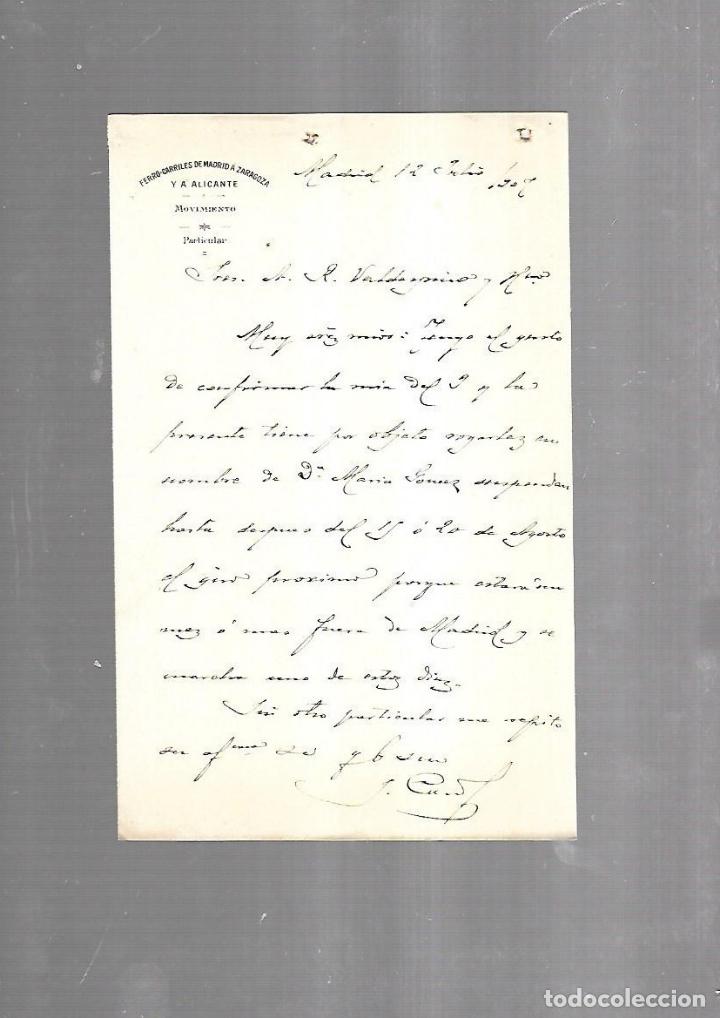 FERRO-CARRILES DE MADRID A ZARAGOZA
Y A ALICANTE
MOVIMIENTO
Particular
Madrid 12 Julio 1907
Sres. A. R. y Hno
Muy Srs mios: Tengo el gusto
de confirmar la mia del 9 y la
presente tiene por objeto rogarles en
nombre de Dª Maria Gomez suspendan
hasta despues del 15 ó 20 de Agosto
el giro proximo porque estará un
mes ó mas fuera de Madrid y se
marcha uno de estos dias.
Sin otro particular me repito
su afmo
todocoleccion
todocoleccion.net